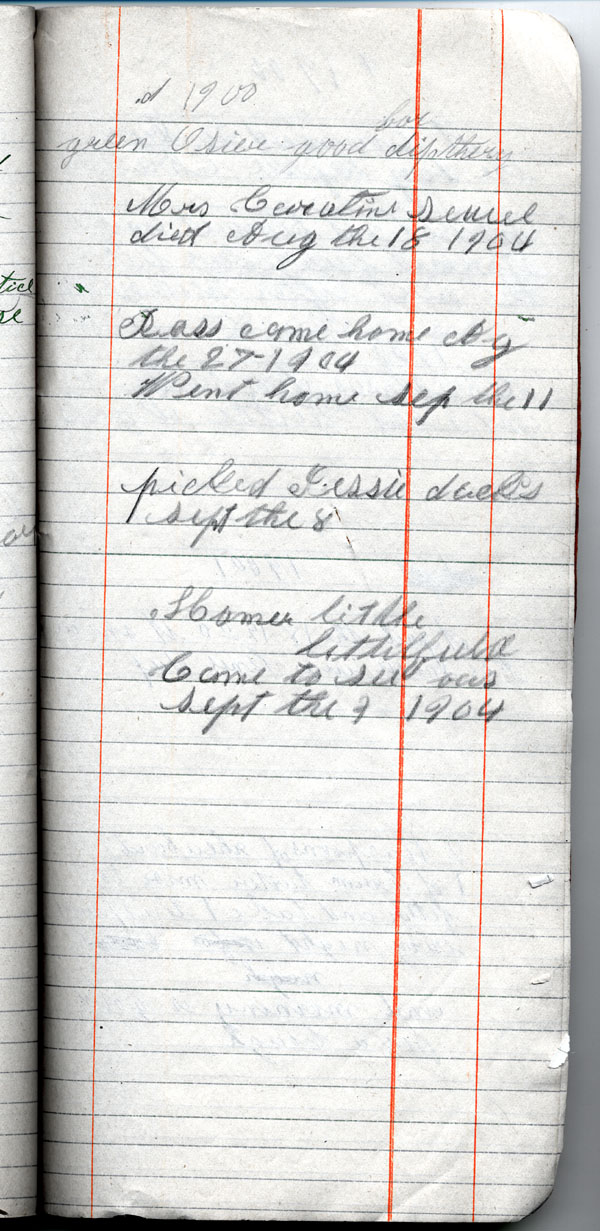 d 1900
for
green Osier good dipthery
Mrs Caroline
died Aug the 18 1904
came home Ag
the 27 1904
Went home sep the 11
picked Jessie ducks
sept the 8
Homer little
littlefield
Came to see ous
sept the 9 1904